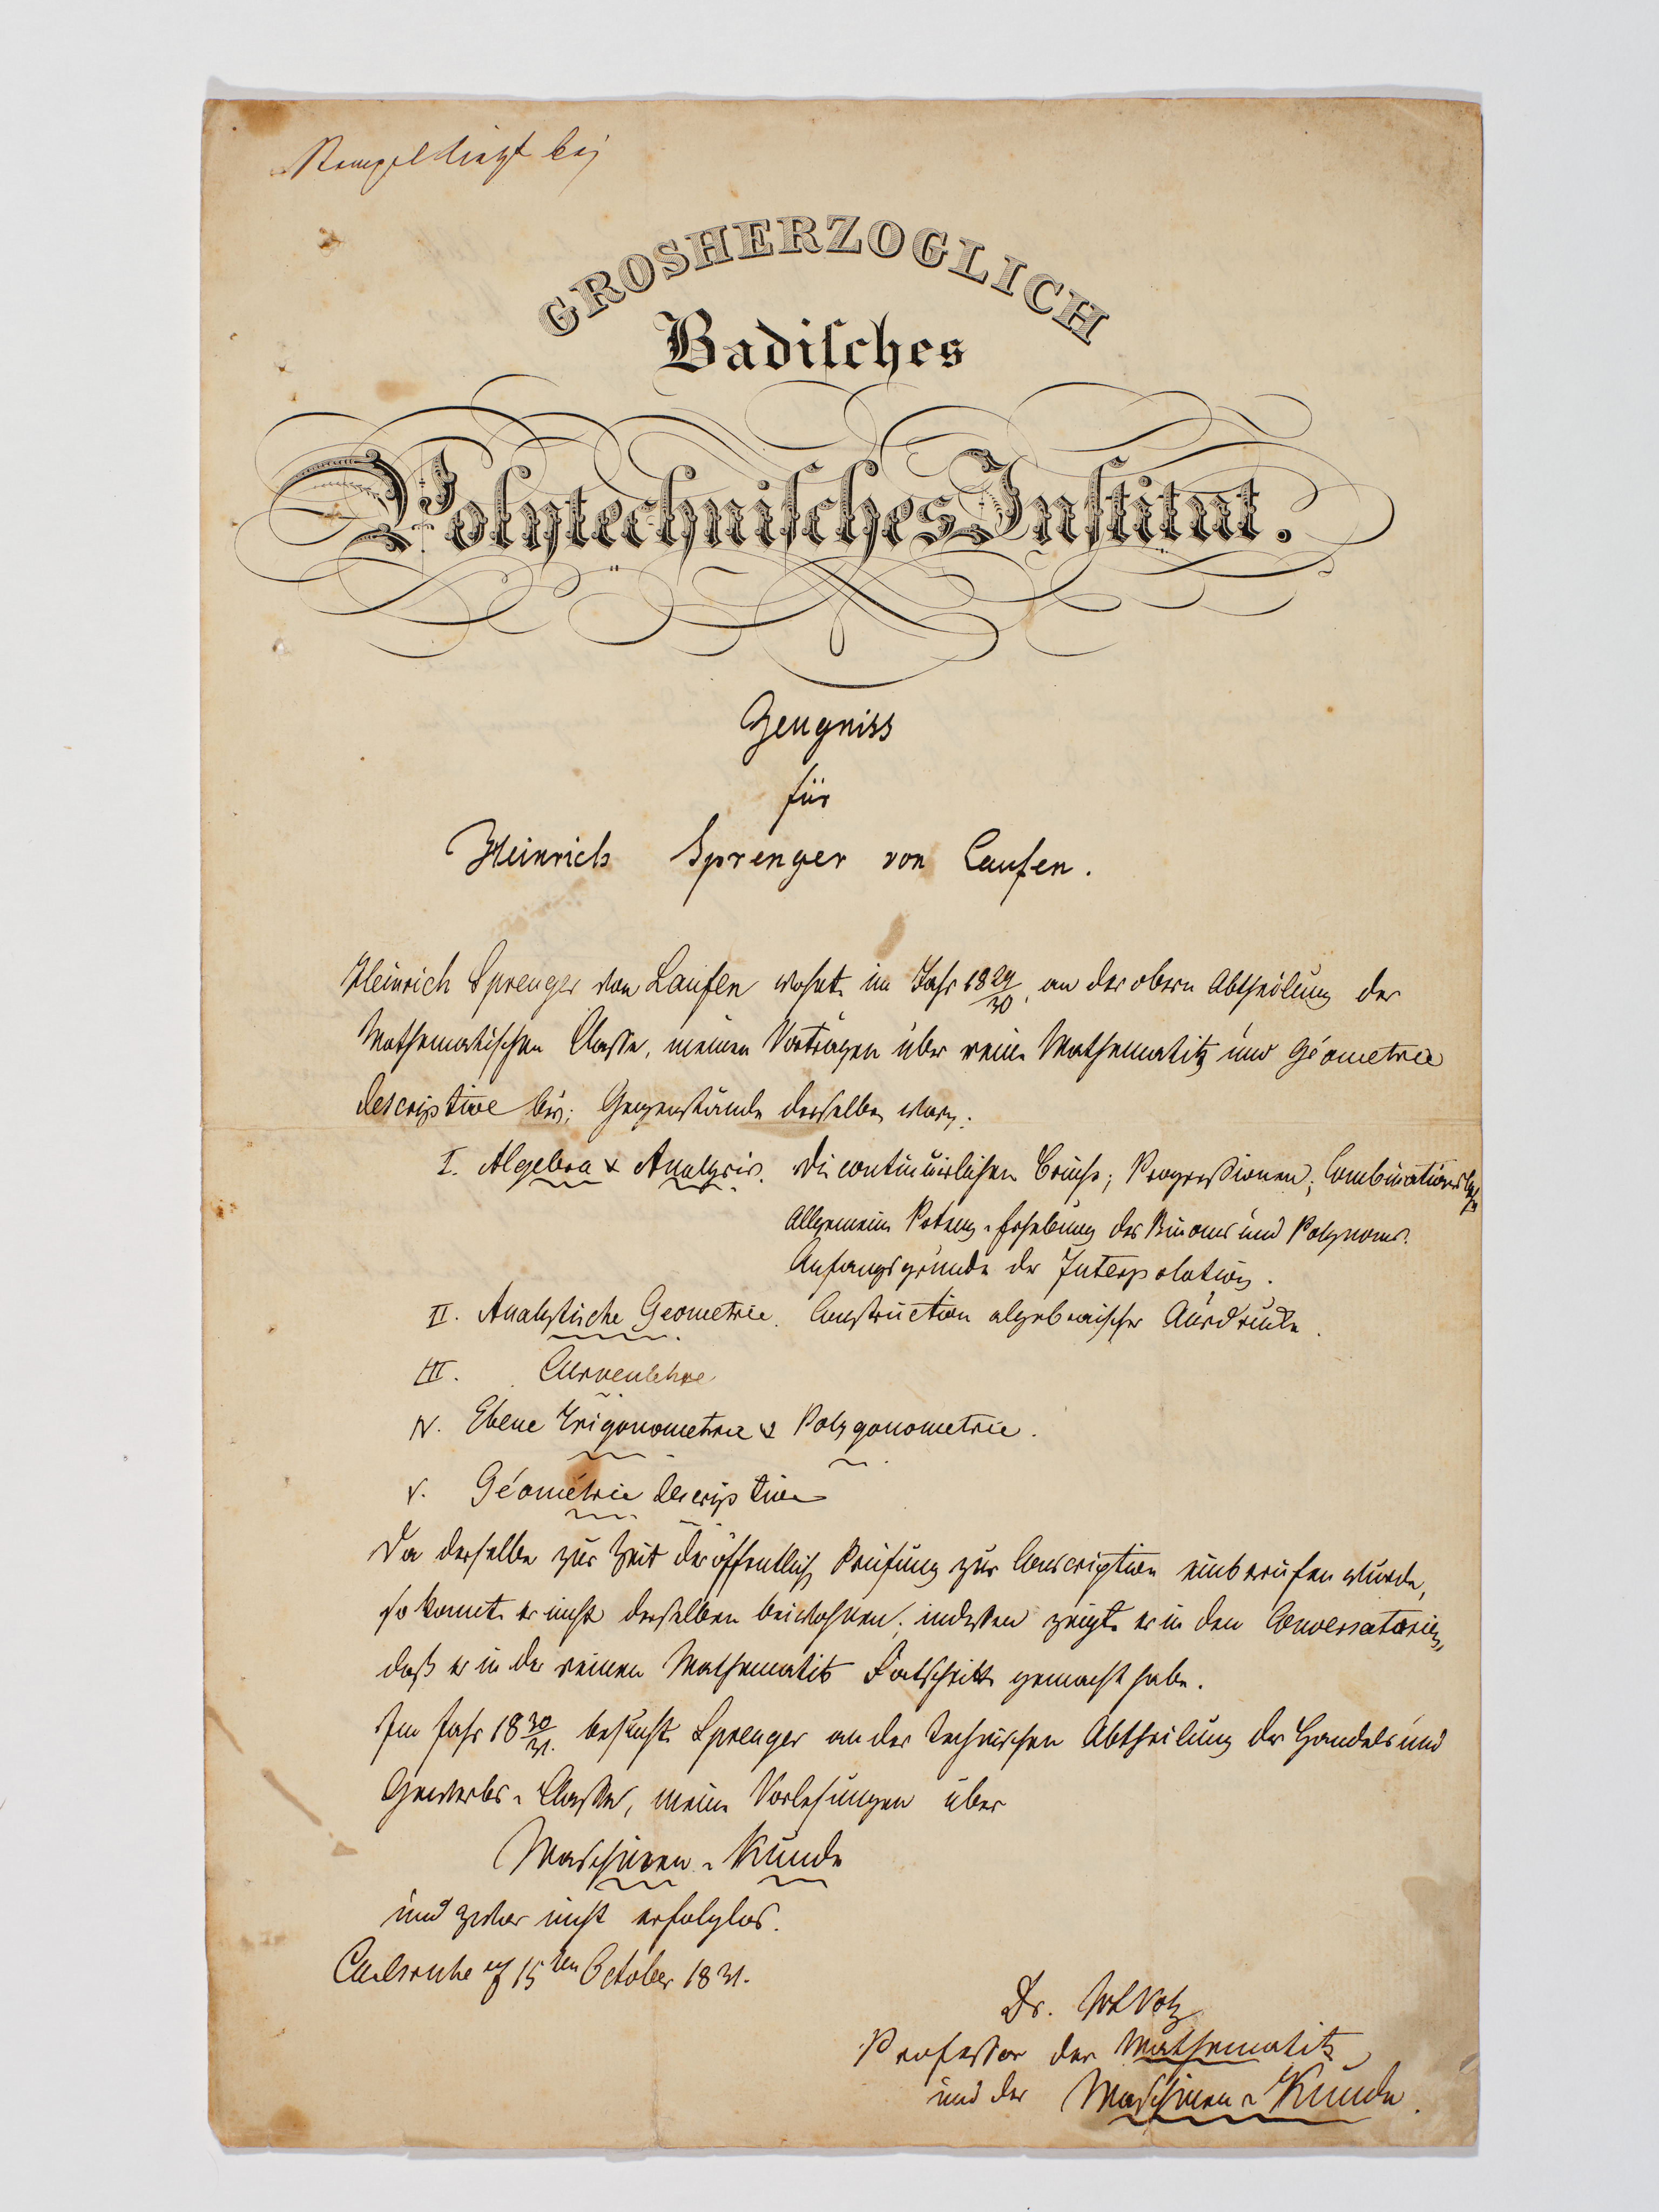 Stempel liegt bej
GROSHERZOGLICH
Badiſches
Polytechniſches Inſtitut.
Zeugniss
für
Heinrich Sprenger von Laufen.
Heinrich Sprenger von Laufen wohnte im Jahr 1829/30, an der obern Abtheilung der
Mathematischen Classe, meinen Vorträgen über reine Mathematik und Géometrie
descriptive bei; Gegenstände derselben waren:
I. Algebra & Analysis. Die continuirlichen Brüche; Progressionen; Combinationslehre
Allgemeine Potenz-Erhebung des Binoms und Polynoms.
Anfangsgründe der Interpolation.
II. Analytische Geometrie. Construction algebraischer Ausdrücke.
III. Curvenlehre
IV. Ebene Trigonometrie & Polygonometrie.
V. Géométrie descriptive
Da derselbe zur Zeit der öffentlichen Prüfung zur Conscription einberufen wurde,
so konnte er nicht derselben beiwohnen; indessen zeigte er in den Conversatorien,
daß er in der reinen Mathematik Fortschritte gemacht habe.
Im Jahr 1830/31. besuchte Sprenger an der technischen Abtheilung der Handels und
Gewerbs-Classe, meine Vorlesungen über
Maschinen-Kunde
und zwar nicht erfolglos.
Carlsruhe 15ten October 1831.
Dr. Volz
Professor der Mathematik
und der Maschinen-Kunde.